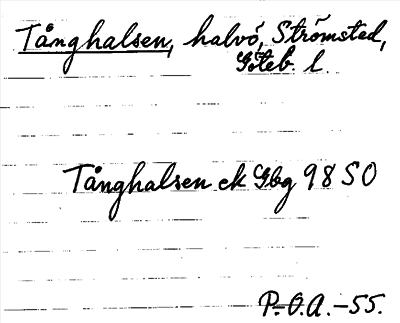 Tånghalsen, halvö, Strömstad,
Göteb. l.
Tånghalsen ek Gbg 98 SO
P.-O.A. -55.